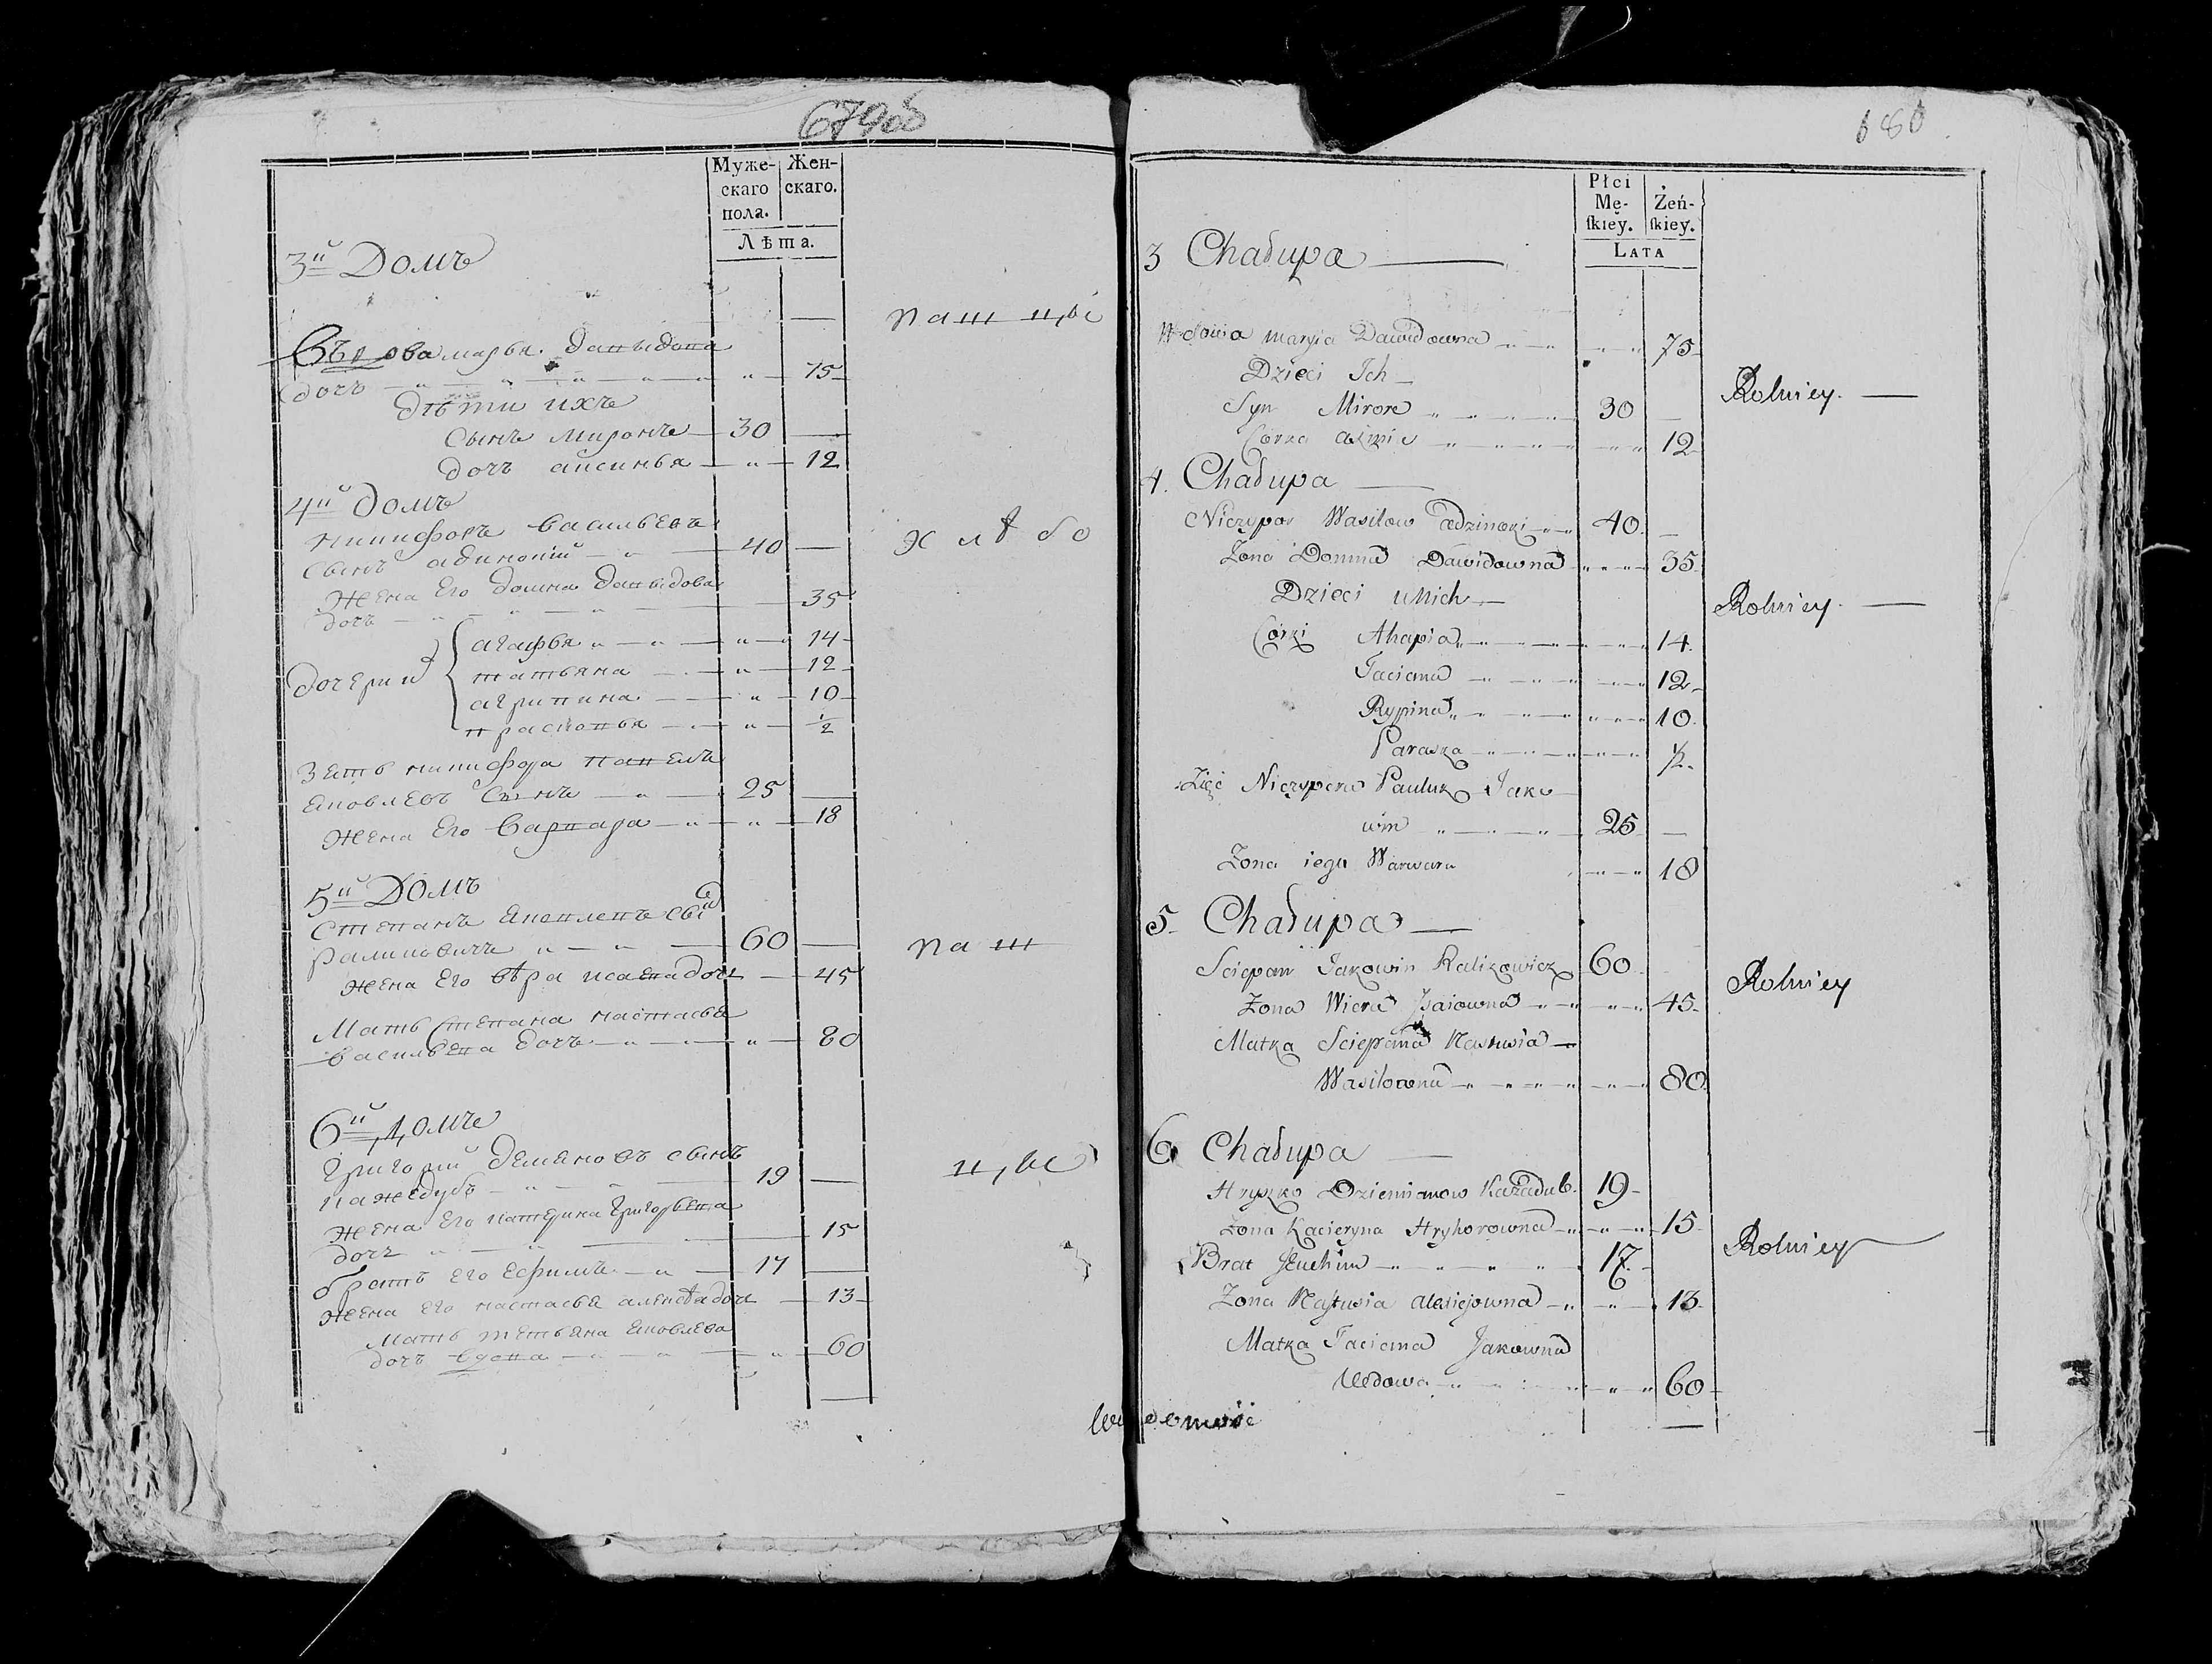 679об
Муже-
скаго
пола.
Жен-
скаго.
Лѣта.
3й Домъ
пашцы
Въдова марья Давыдова
дочь 75
дѣти ихъ
Сынъ миронъ 30
дочь аксинья 12
4й домъ
никифоръ васильевъ
сынъ 40
хлѣбо
Жена Его домна давыдова
дочь 35
дочери
агафья 14
татьяна 12
агрипина 10
прасковья 1/2
Зять никифора павелъ
яковлевъ Сынъ 25
Жена Его варвара 18
5й Домъ
степанъ яковлевъ
раликовичъ 60
паш
Жена Его вѣра исаева дочь 45
Мать степана настасья
васильева дочь 80
6й Домъ
григорий деменовъ сынъ
кажедубъ 19
цы
Жена Его катерина григорьева
дочь 15
братъ Его Ефимъ 17
Жена Его настасья алексѣева дочь 13
Мать тетьяна яковлева
дочь вдова 60
680
Płci
Mę-
ſkiey.
Żeń-
ſkiey.
LATA
3 Chałupa
Wdowa maryia Dawidowna 75
Dzieci Ich
Rolniey.
Syn Miron 30
Corka 12
4. Chałupa
Niczypor Wasilow 40
Żona Domna Dawidowna 35
Dzieci u Nich
Rolniey.
Corki Ahapia 14
Taciana 12
Rypina 10
Paraska 1/2
Zięć Niczypora Pauluk Jako
win 25
Żona iego Warwara 18
5 Chałupa
Sciepan Jakowin Ralikowicz 60
Rolniey
Żona Wiera Isaiowna 45
Matka Sciepana Nastusia
Wasilowna 80
6 Chałupa
Hryszko Dziemianow Każadub 19
Żona Kacieryna Hryhorowna 15
Rolniey
Brat Jeuchim 17
Żona Nastusia alexiejowna 13
Matka Taciana Jakowna
Wdowa 60